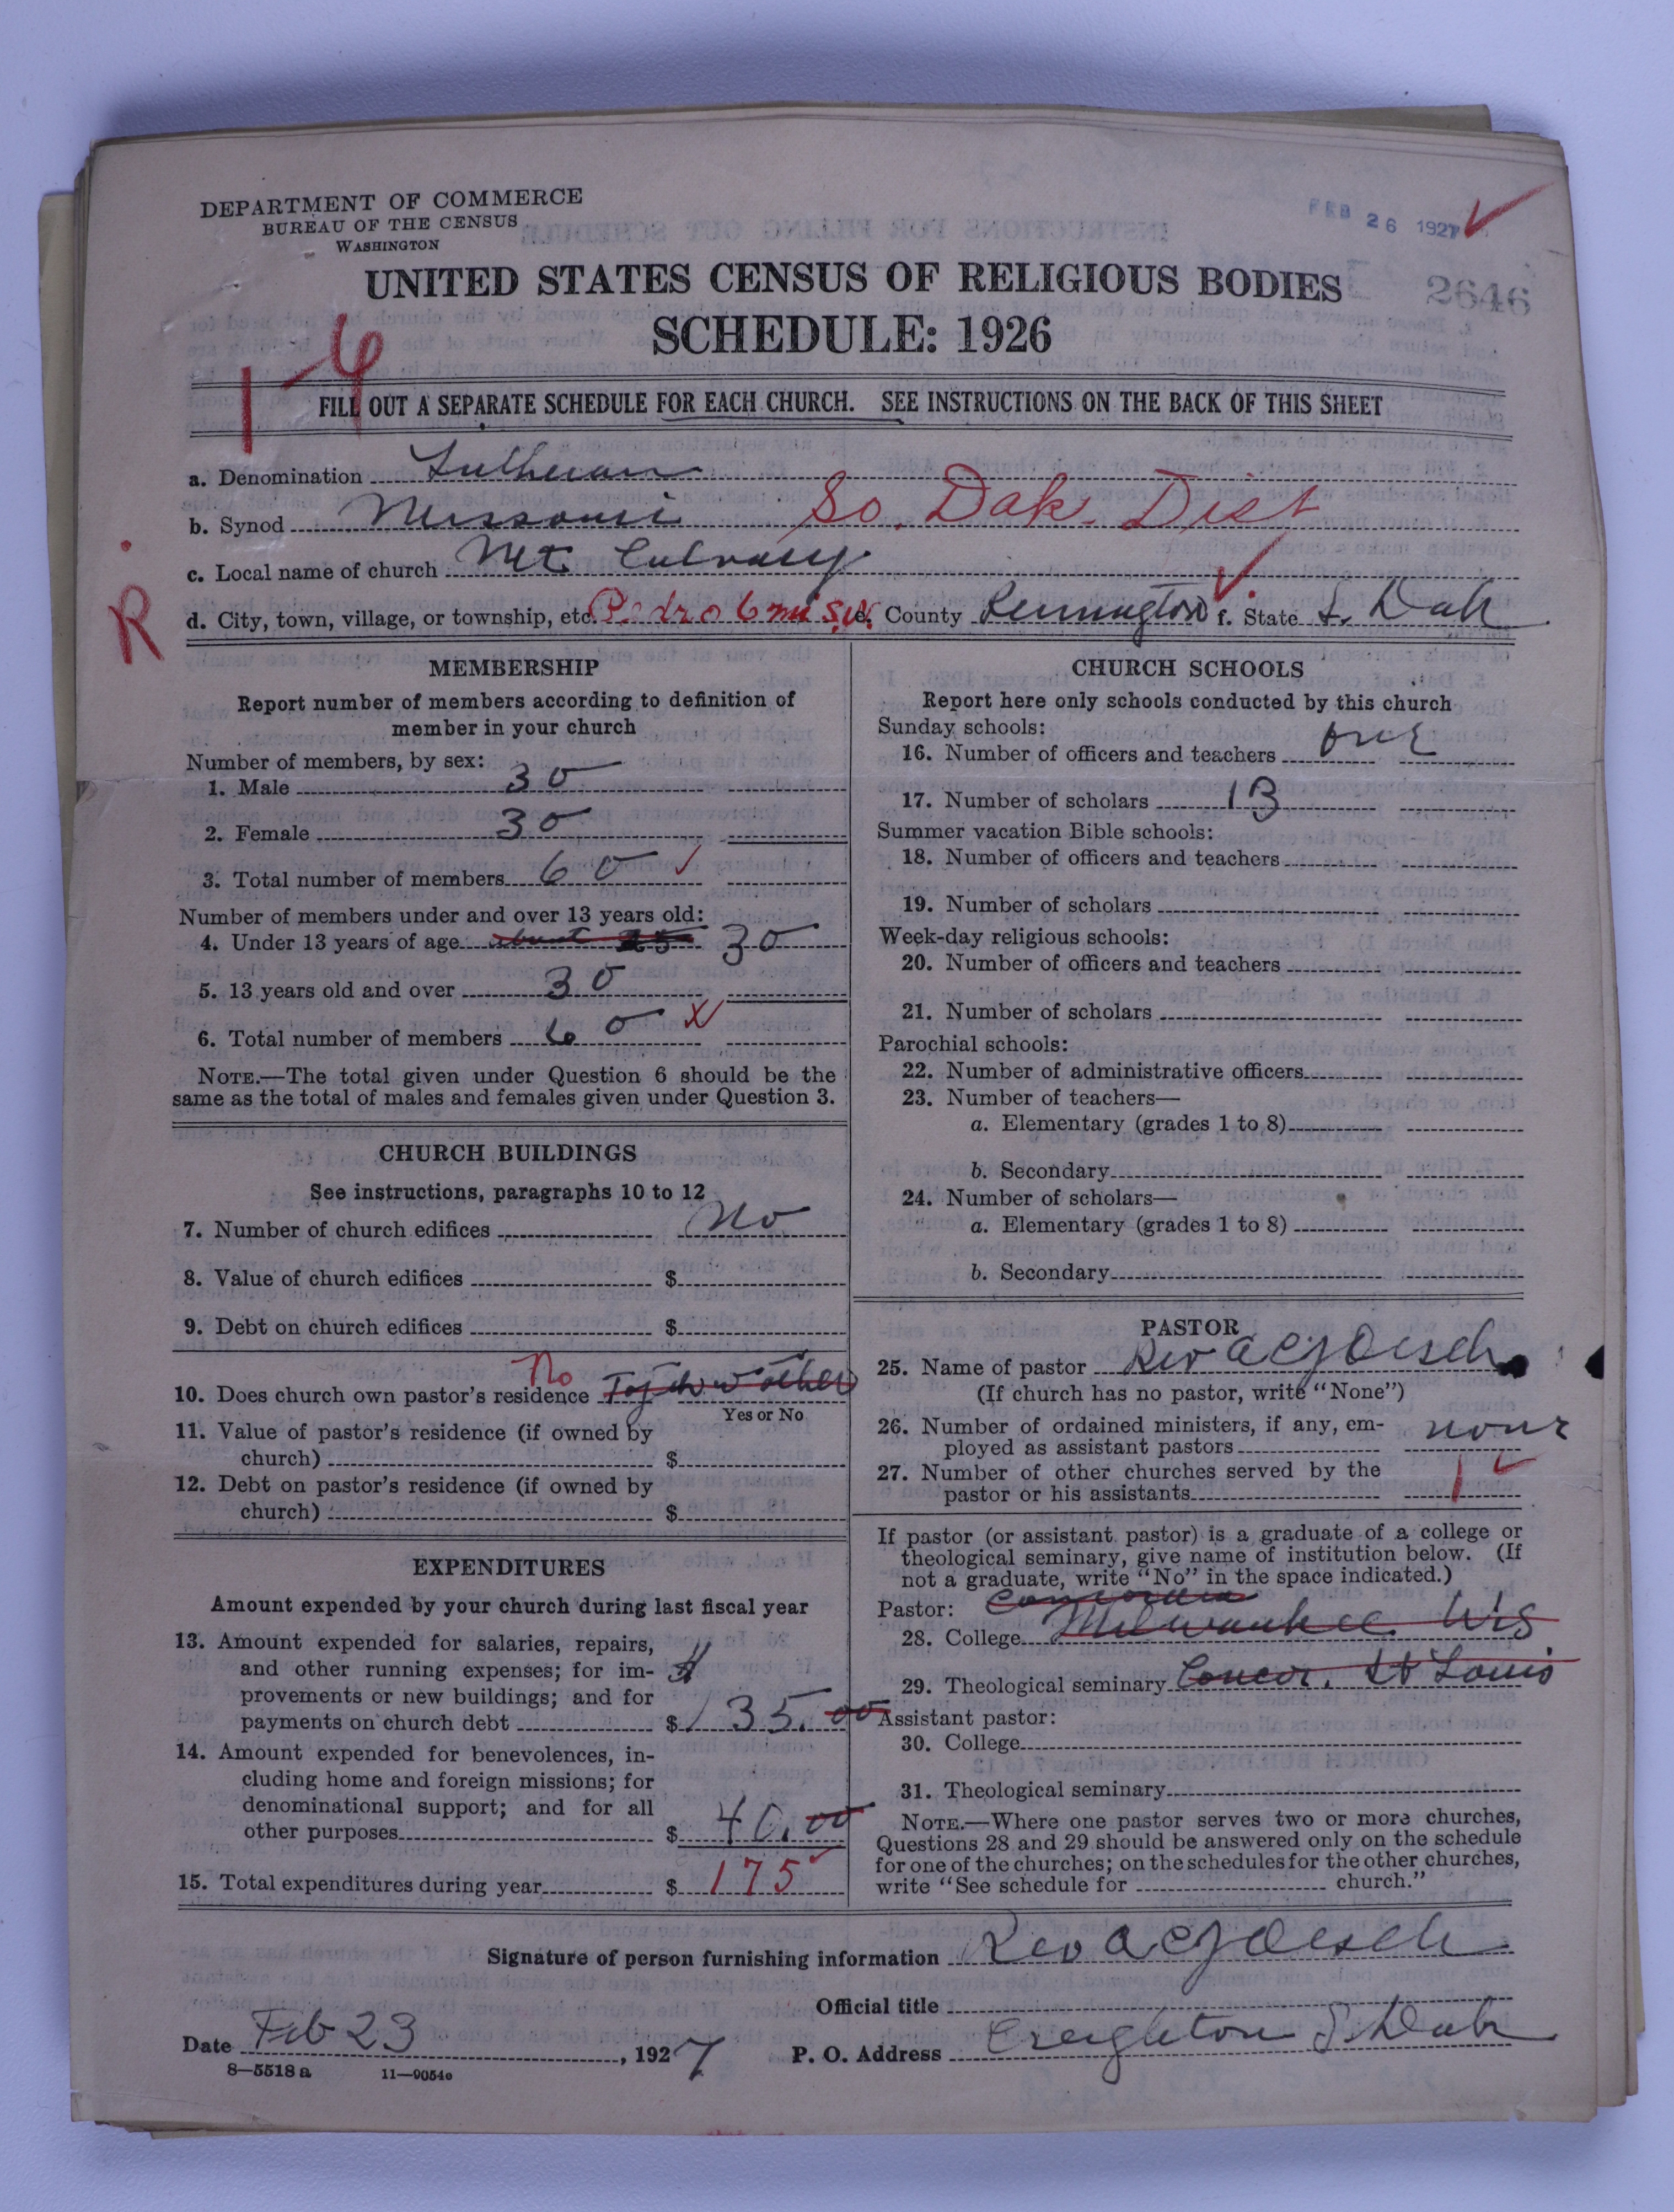 DEPARTMENT OF COMMERCE
BUREAU OF THE CENSUS
WASHINGTON
FEB 26 1927
2646
UNITED STATES CENSUS OF RELIGIOUS BODIES
SCHEDULE: 1926
FILL OUT A SEPARATE SCHEDULE FOR EACH CHURCH. SEE INSTRUCTIONS ON THE BACK OF THIS SHEET
a. Denomination Lutheran
b. Synod Missouri So. Dak. Dist
c. Local name of church Mt. Calvary
R
d. City, town, village, or township, etc. Pedro 6 mi S.W. e. County Pennington f. State S. Dak
MEMBERSHIP
Report number of members according to definition of
member in your church
Number of members, by sex:
1. Male 30
2. Female 30
3. Total number of members 60
Number of members under and over 13 years old:
4. Under 13 years of age about 25 30
5. 13 years old and over 30
6. Total number of members 60
NOTE.—The total given under Question 6 should be the
same as the total of males and females given under Question 3.
CHURCH BUILDINGS
See instructions, paragraphs 10 to 12
7. Number of church edifices no
8. Value of church edifices $
9. Debt on church edifices $
10. Does church own pastor's residence No
Yes or No
11. Value of pastor's residence (if owned by
church) $
12. Debt on pastor's residence (if owned by
church) $
EXPENDITURES
Amount expended by your church during last fiscal year
13. Amount expended for salaries, repairs,
and other running expenses; for im-
provements or new buildings; and for
payments on church debt $ 135.00
14. Amount expended for benevolences, in-
cluding home and foreign missions; for
denominational support; and for all
other purposes $ 40.00
15. Total expenditures during year $ 175
CHURCH SCHOOLS
Report here only schools conducted by this church
Sunday schools:
16. Number of officers and teachers one
17. Number of scholars 13
Summer vacation Bible schools:
18. Number of officers and teachers
19. Number of scholars
Week-day religious schools:
20. Number of officers and teachers
21. Number of scholars
Parochial schools:
22. Number of administrative officers
23. Number of teachers—
a. Elementary (grades 1 to 8)
b. Secondary
24. Number of scholars—
a. Elementary (grades 1 to 8)
b. Secondary
PASTOR
25. Name of pastor Rev A C J Oesch
(If church has no pastor, write "None")
26. Number of ordained ministers, if any, em-
ployed as assistant pastors none
27. Number of other churches served by the
pastor or his assistants 1
If pastor (or assistant pastor) is a graduate of a college or
theological seminary, give name of institution below. (If
not a graduate, write "No" in the space indicated.)
Pastor: Concordia
28. College Milwaukee Wis.
29. Theological seminary Concor. St Louis
Assistant pastor:
30. College
31. Theological seminary
NOTE.—Where one pastor serves two or more churches,
Questions 28 and 29 should be answered only on the schedule
for one of the churches; on the schedules for the other churches,
write "See schedule for church."
Signature of person furnishing information Rev A C J Oesch
Official title
Date Feb 23, 1927 P. O. Address Creighton S. Dak
8—5518 a 11—9054c